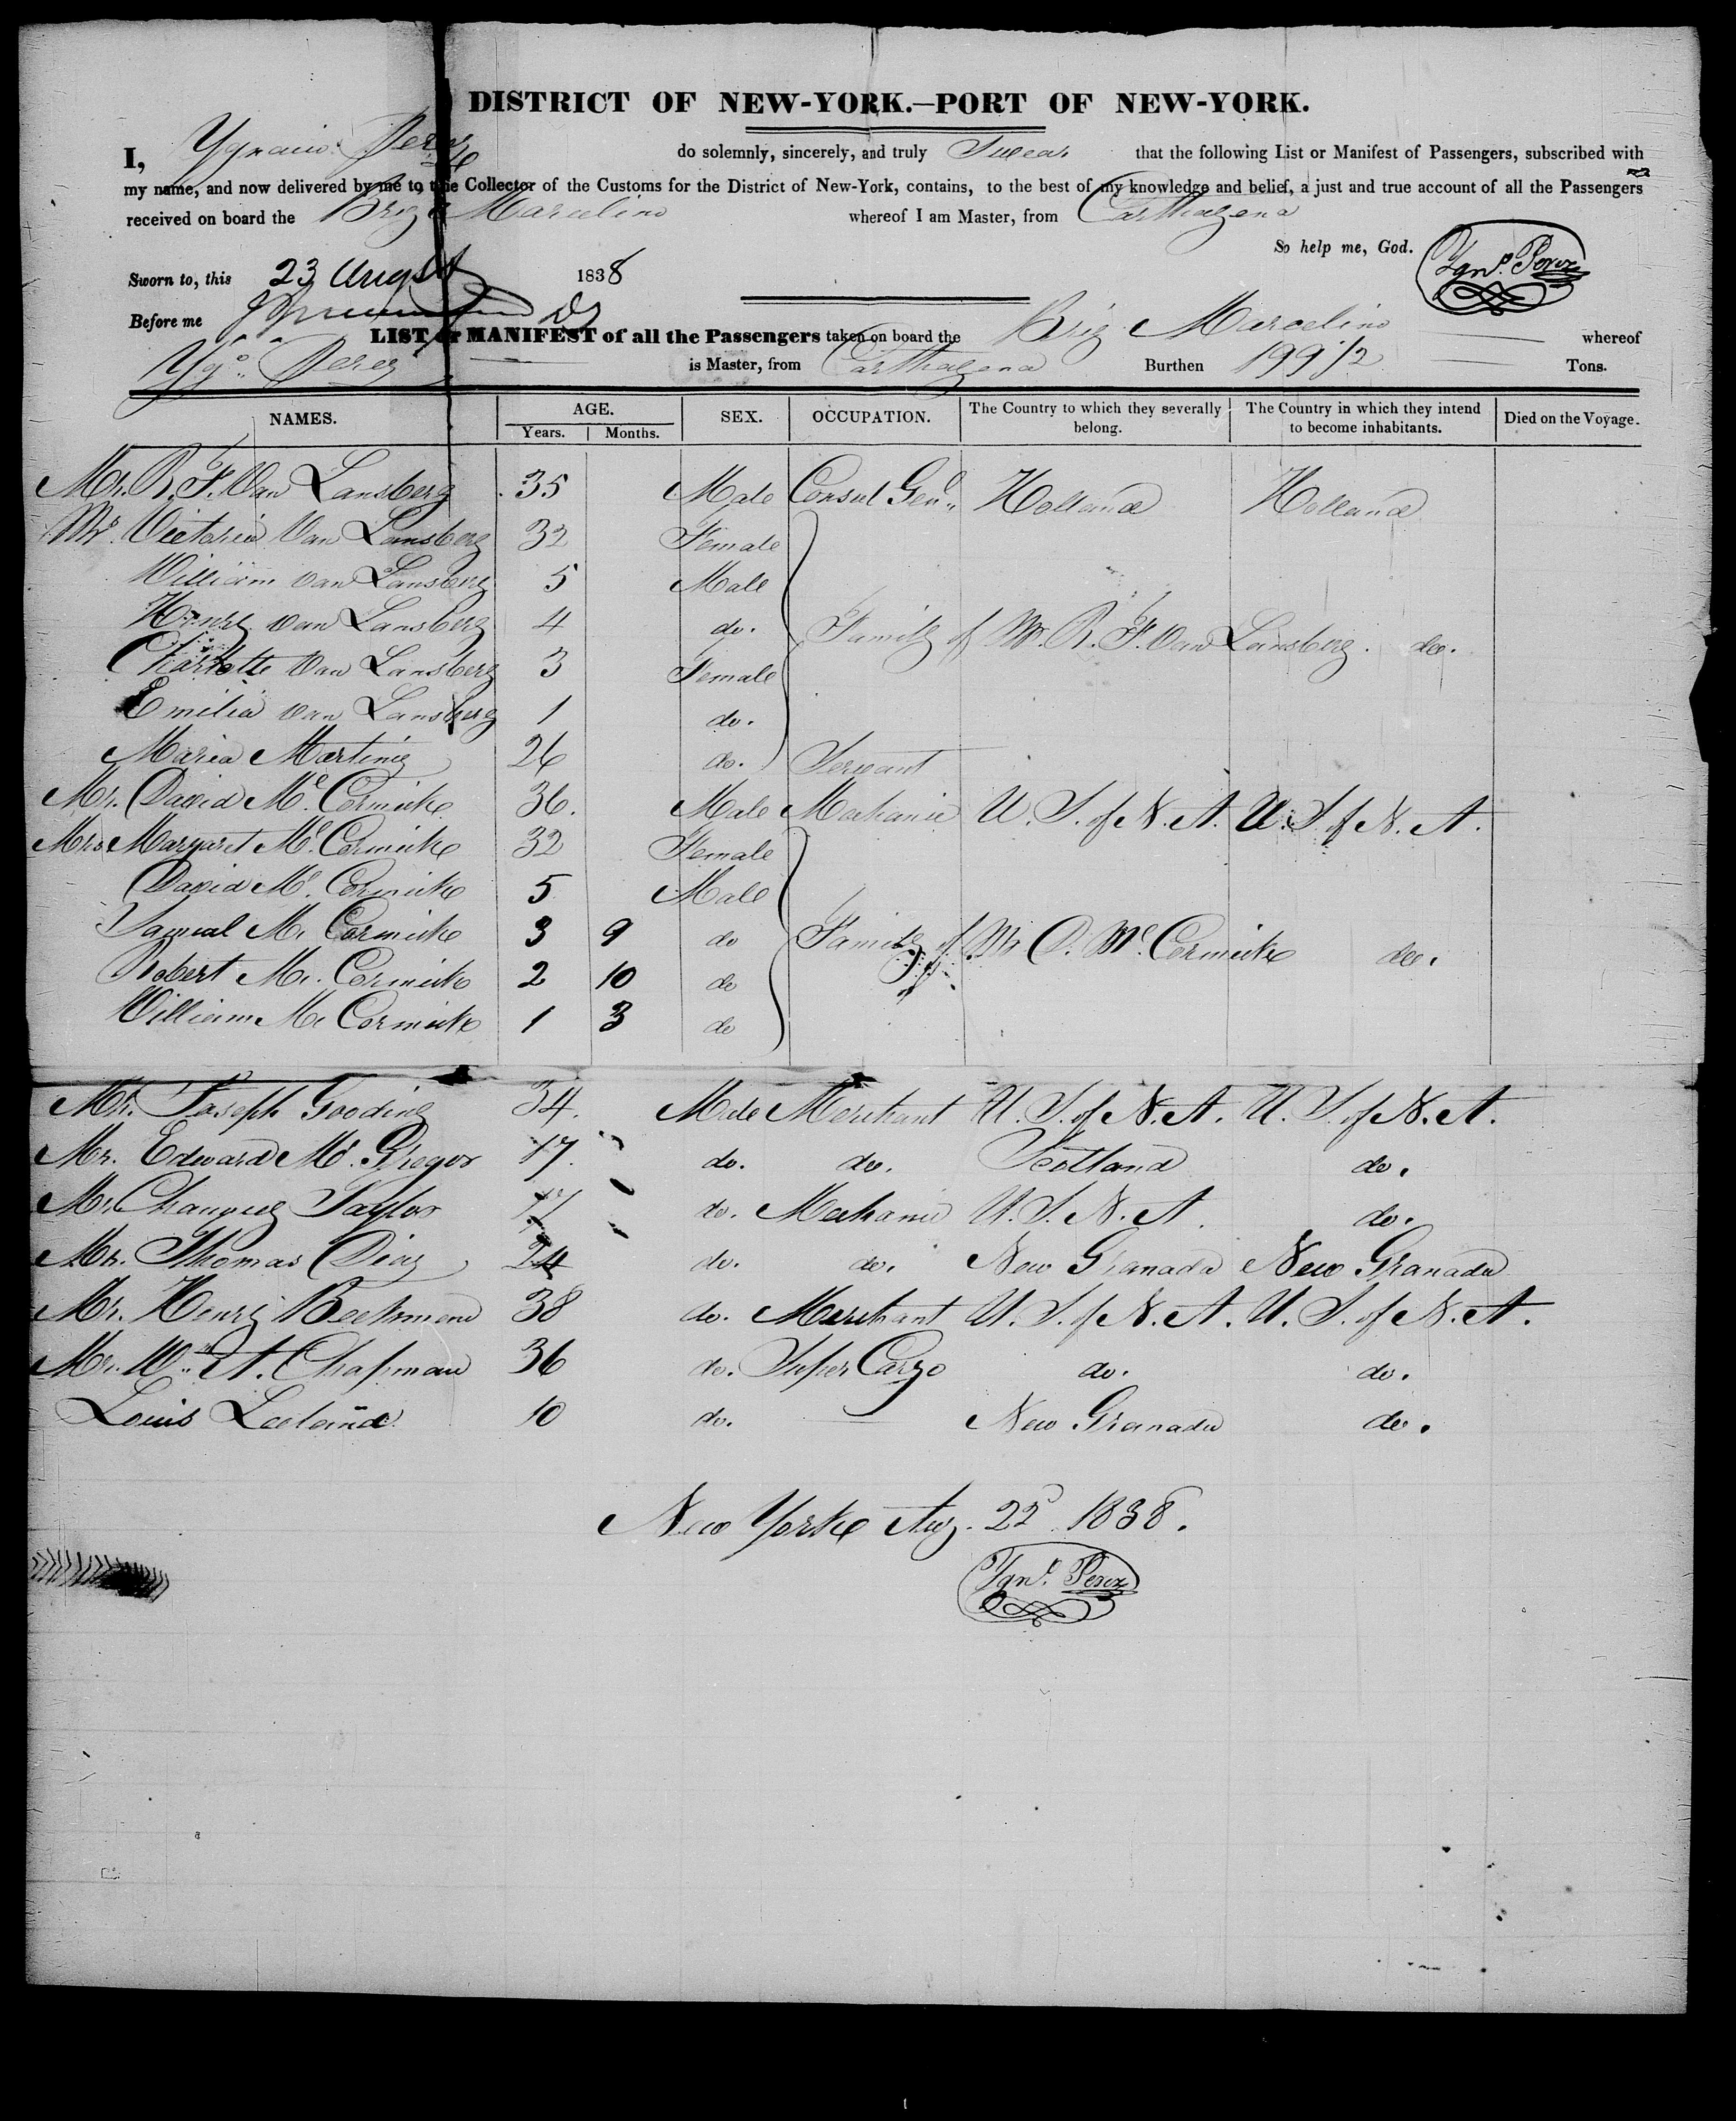 DISTRICT OF NEW-YORK.—PORT OF NEW-YORK.
I, Ygnacio Perez do solemnly, sincerely, and truly Swear that the following List or Manifest of Passengers, subscribed with
my name, and now delivered by me to the Collector of the Customs for the District of New-York, contains, to the best of my knowledge and belief, a just and true account of all the Passengers
received on board the Brig Marcelino whereof I am Master, from Carthagena
So help me, God. Ygno. Perez
Sworn to, this 23 August 1838
Before me
LIST or MANIFEST of all the Passengers taken on board the Brig Marcelino whereof
Ygo. Perez is Master, from Carthagena Burthen 199 1/2 Tons.
NAMES. AGE. Years. Months. SEX. OCCUPATION. The Country to which they severally belong. The Country in which they intend to become inhabitants. Died on the Voyage.
Mr. R. F. Van Lansberg 35 Male Consul Genl. Holland Holland
Mrs. Victoria Van Lansberg 32 Female
William van Lansberg 5 Male
Henry van Lansberg 4 do. Family of Mr. R. F. Van Lansberg. do.
Charlotte Van Lansberg 3 Female
Emilia van Lansberg 1 do.
Maria Martinez 26 do. Servant
Mr. David Mc. Cormick 36. Male Mechanic U. S. of N. A. U. S. of N. A.
Mrs Margaret Mc. Cormick 32 Female
David Mc. Cormick 5 Male
Samual Mc Cormick 3 9 do Family of Mr D. Mc. Cormick do.
Robert Mc. Cormick 2 10 do
William Mc Cormick 1 3 do
Mr. Joseph Gooding 34. Male Merchant U. S. of N. A. U. S. of N. A.
Mr. Edward Mc. Gregor 17. do. do. Scotland do.
Mr. Chauncey Taylor do. Mechanic U. S. N. A. do.
Mr. Thomas Diaz 24 do. do. New Granada New Granada
Mr. Henry Beekmand 38 do. Merchant U. S. of N. A. U. S. of N. A.
Mr. Wm. A. Chapman 36 do. Super Cargo do. do.
Louis 10 do. — New Granada do.
New York Aug. 22d 1838.
Ygno. Perez